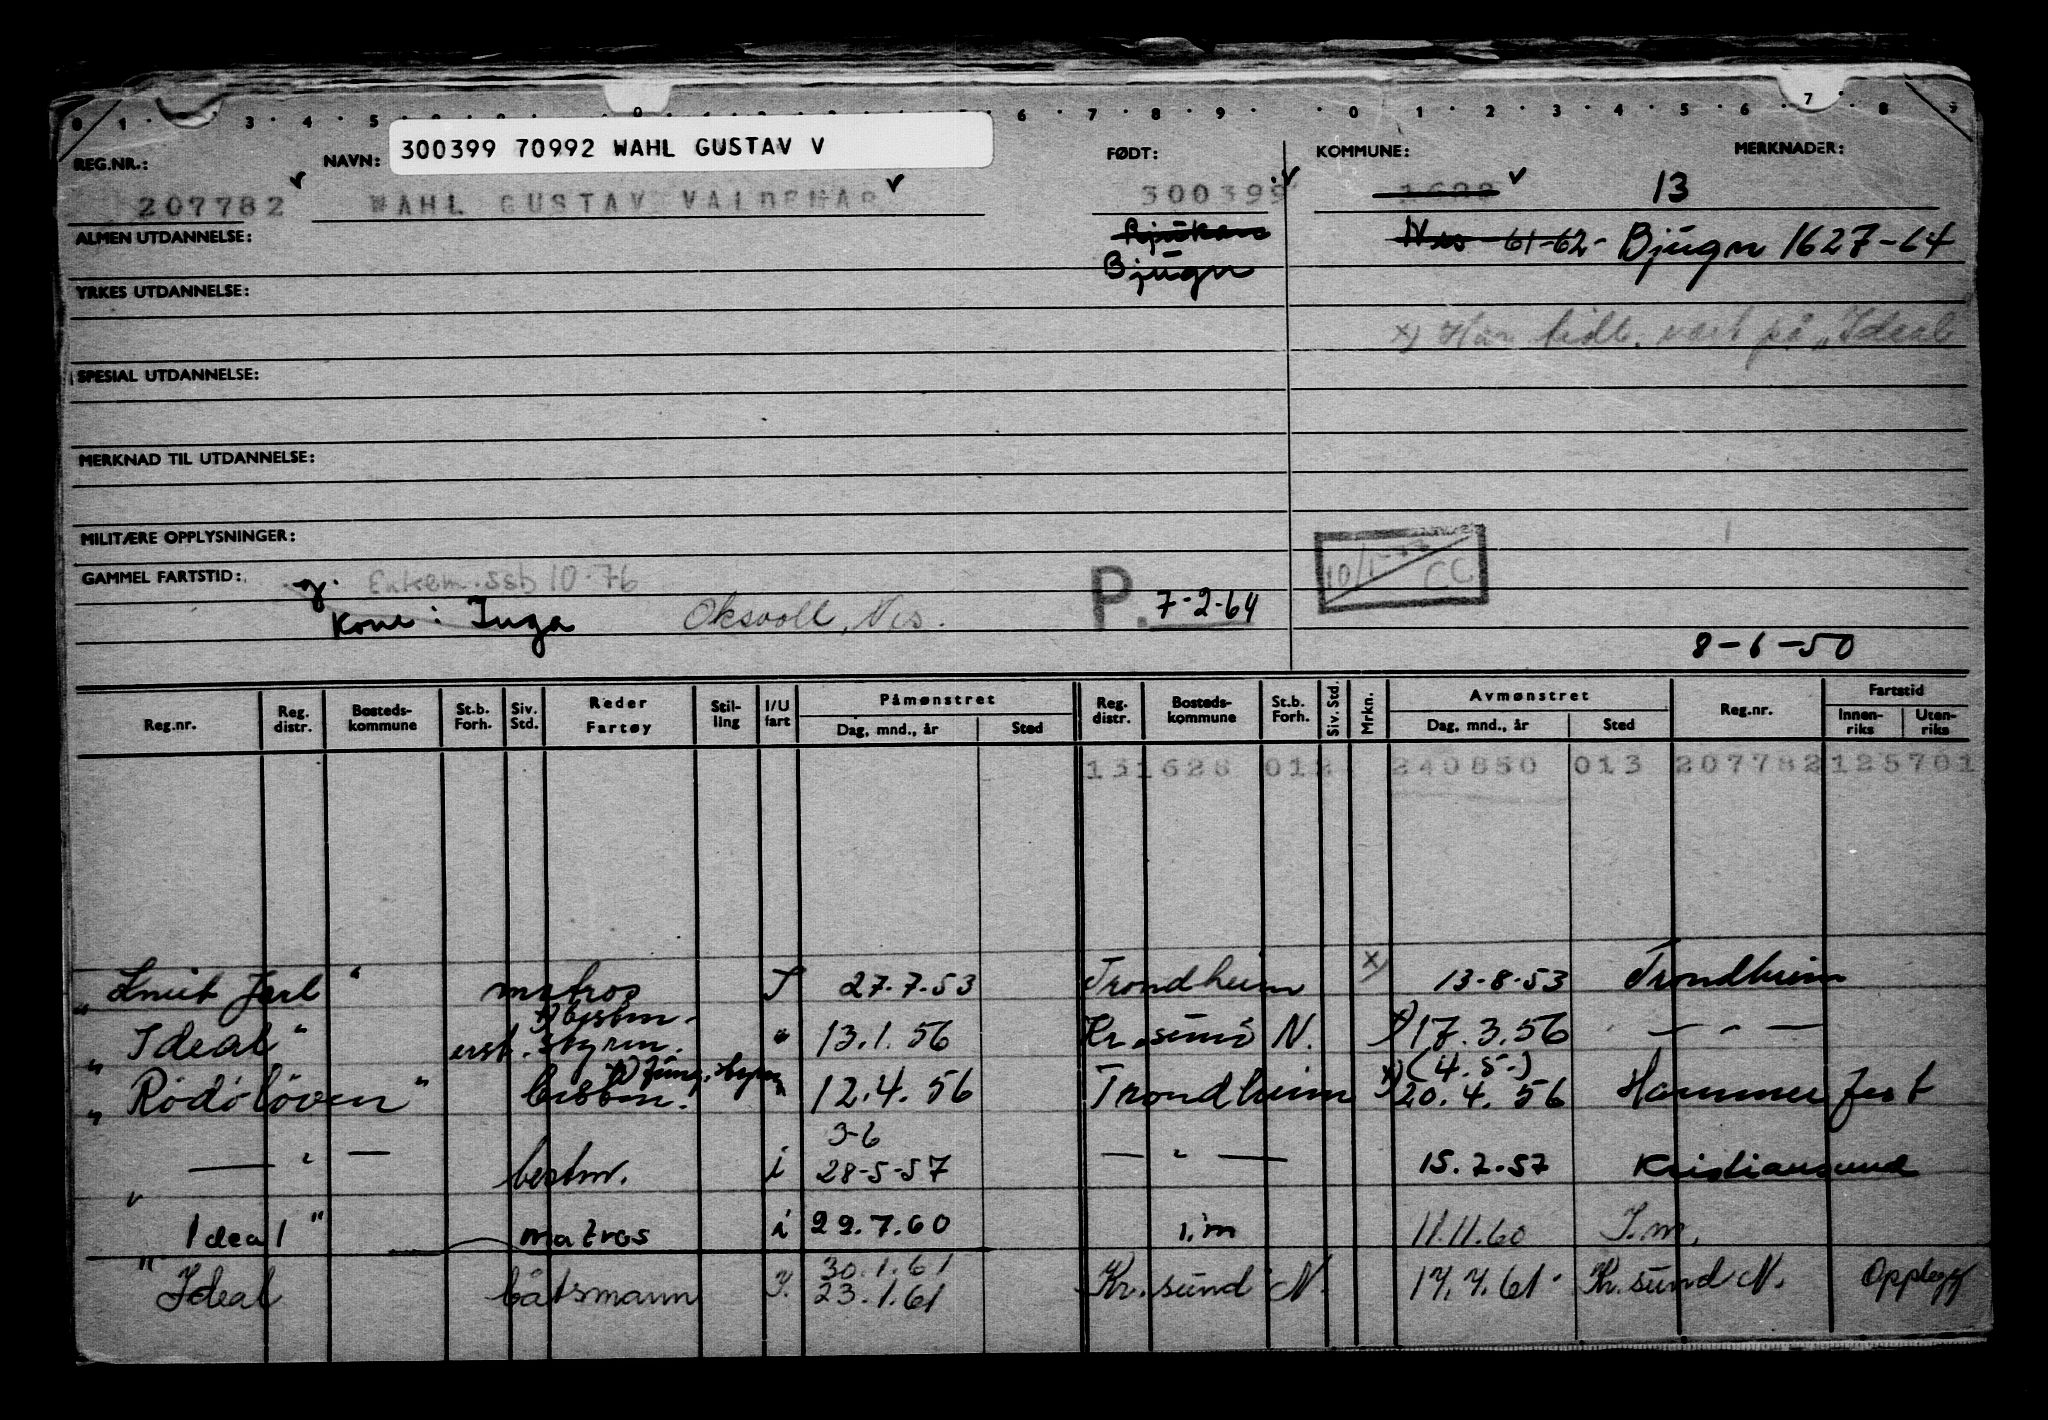 0 1 3 4 5 9 6 7 8 9 0 1 2 3 4 5 6 7 8 9
REG.NR.: NAVN: 300399 70992 WAHL GUSTAV V FØDT: KOMMUNE: MERKNADER:
207782 WAHL GUSTAV VALDEMAR 300399 13
ALMEN UTDANNELSE: Nes 61-62- Bjugn 1627-64
Bjugn
YRKES UTDANNELSE:
x) Har tidl. vært på „Ideal
SPESIAL UTDANNELSE:
MERKNAD TIL UTDANNELSE:
MILITÆRE OPPLYSNINGER:
GAMMEL FARTSTID: g. Enkem. ssb 10-76 P. 7-2-64 CC
Kone: Inga Oksvoll, Nes.
8-6-50
Reg.nr. Reg. distr. Bosteds-kommune St.b. Forh. Siv. Std. Reder Fartøy Stil-ling I/U fart Påmønstret Dag, mnd., år Sted Reg. distr. Bosteds-kommune St.b. Forh. Siv. Std. Mrkn. Avmønstret Dag, mnd., år Sted Reg.nr. Fartstid Innen-riks Uten-riks
131628 012 240850 013 207782 125701
„Knut Jarl“ matros I 27.7.53 Trondheim x) 13-8-53 Trondheim
x) bestm.
„Ideal“ erst. styrm. " 13.1.56 Kr.sund N. x) 17.3.56 — " —
x) Jung. (4.5-)
„Rødøløven“ bestm. 12.4.56 Trondheim x) 20.4.56 Hammerfest
3-6
— " — bestm. i 28-5-57 — " — 15.7.57 Kristiansund
"Ideal" matros i 22.7.60 i.m 11.11.60 I.m.
30.1.61
" Ideal båtsmann I. 23.1.61 Kr.sund N. 17.7.61 Kr.sund N. Opplegg